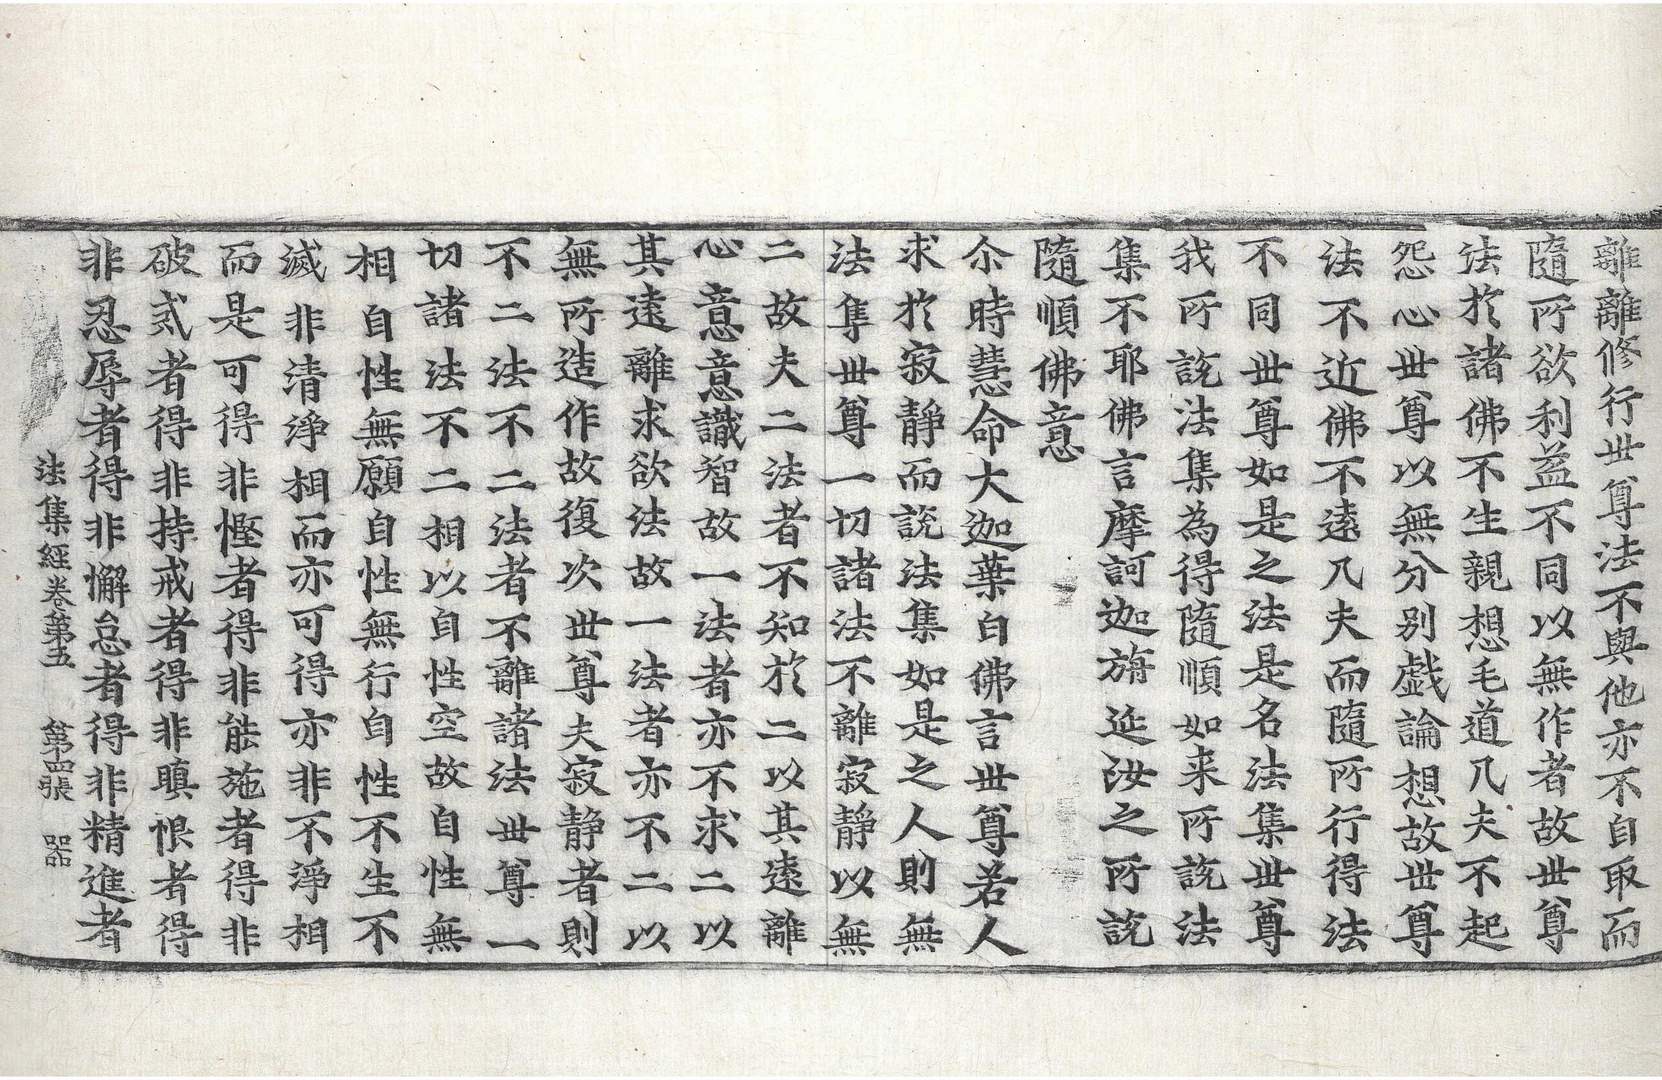 離離修行世尊法不與他亦不自取而
隨所欲利益不同以無作者故世尊
法於諸佛不生親想毛道凡夫不起
怨心世尊以無分別戲論想故世尊
法不近佛不遠凡夫而隨所行得法
不同世尊如是之法是名法集世尊
我所說法集為得隨順如来所說法
集不耶佛言摩訶迦旃延汝之所說
隨順佛意
尒時慧命大迦葉白佛言世尊若人
求於寂靜而說法集如是之人則無
法集世尊一切諸法不離寂靜以無
二故夫二法者不知於二以其遠離
心意意識智故一法者亦不求二以
其遠離求欲法故一法者亦不二以
無所造作故復次世尊夫寂靜者則
不二法不二法者不離諸法世尊一
切諸法不二相以自性空故自性無
相自性無願自性無行自性不生不
滅非清淨相而亦可得亦非不淨相
而是可得非慳者得非能施者得非
破戒者得非持戒者得非瞋恨者得
非忍辱者得非懈怠者得非精進者
法集經卷第五　第四張　器